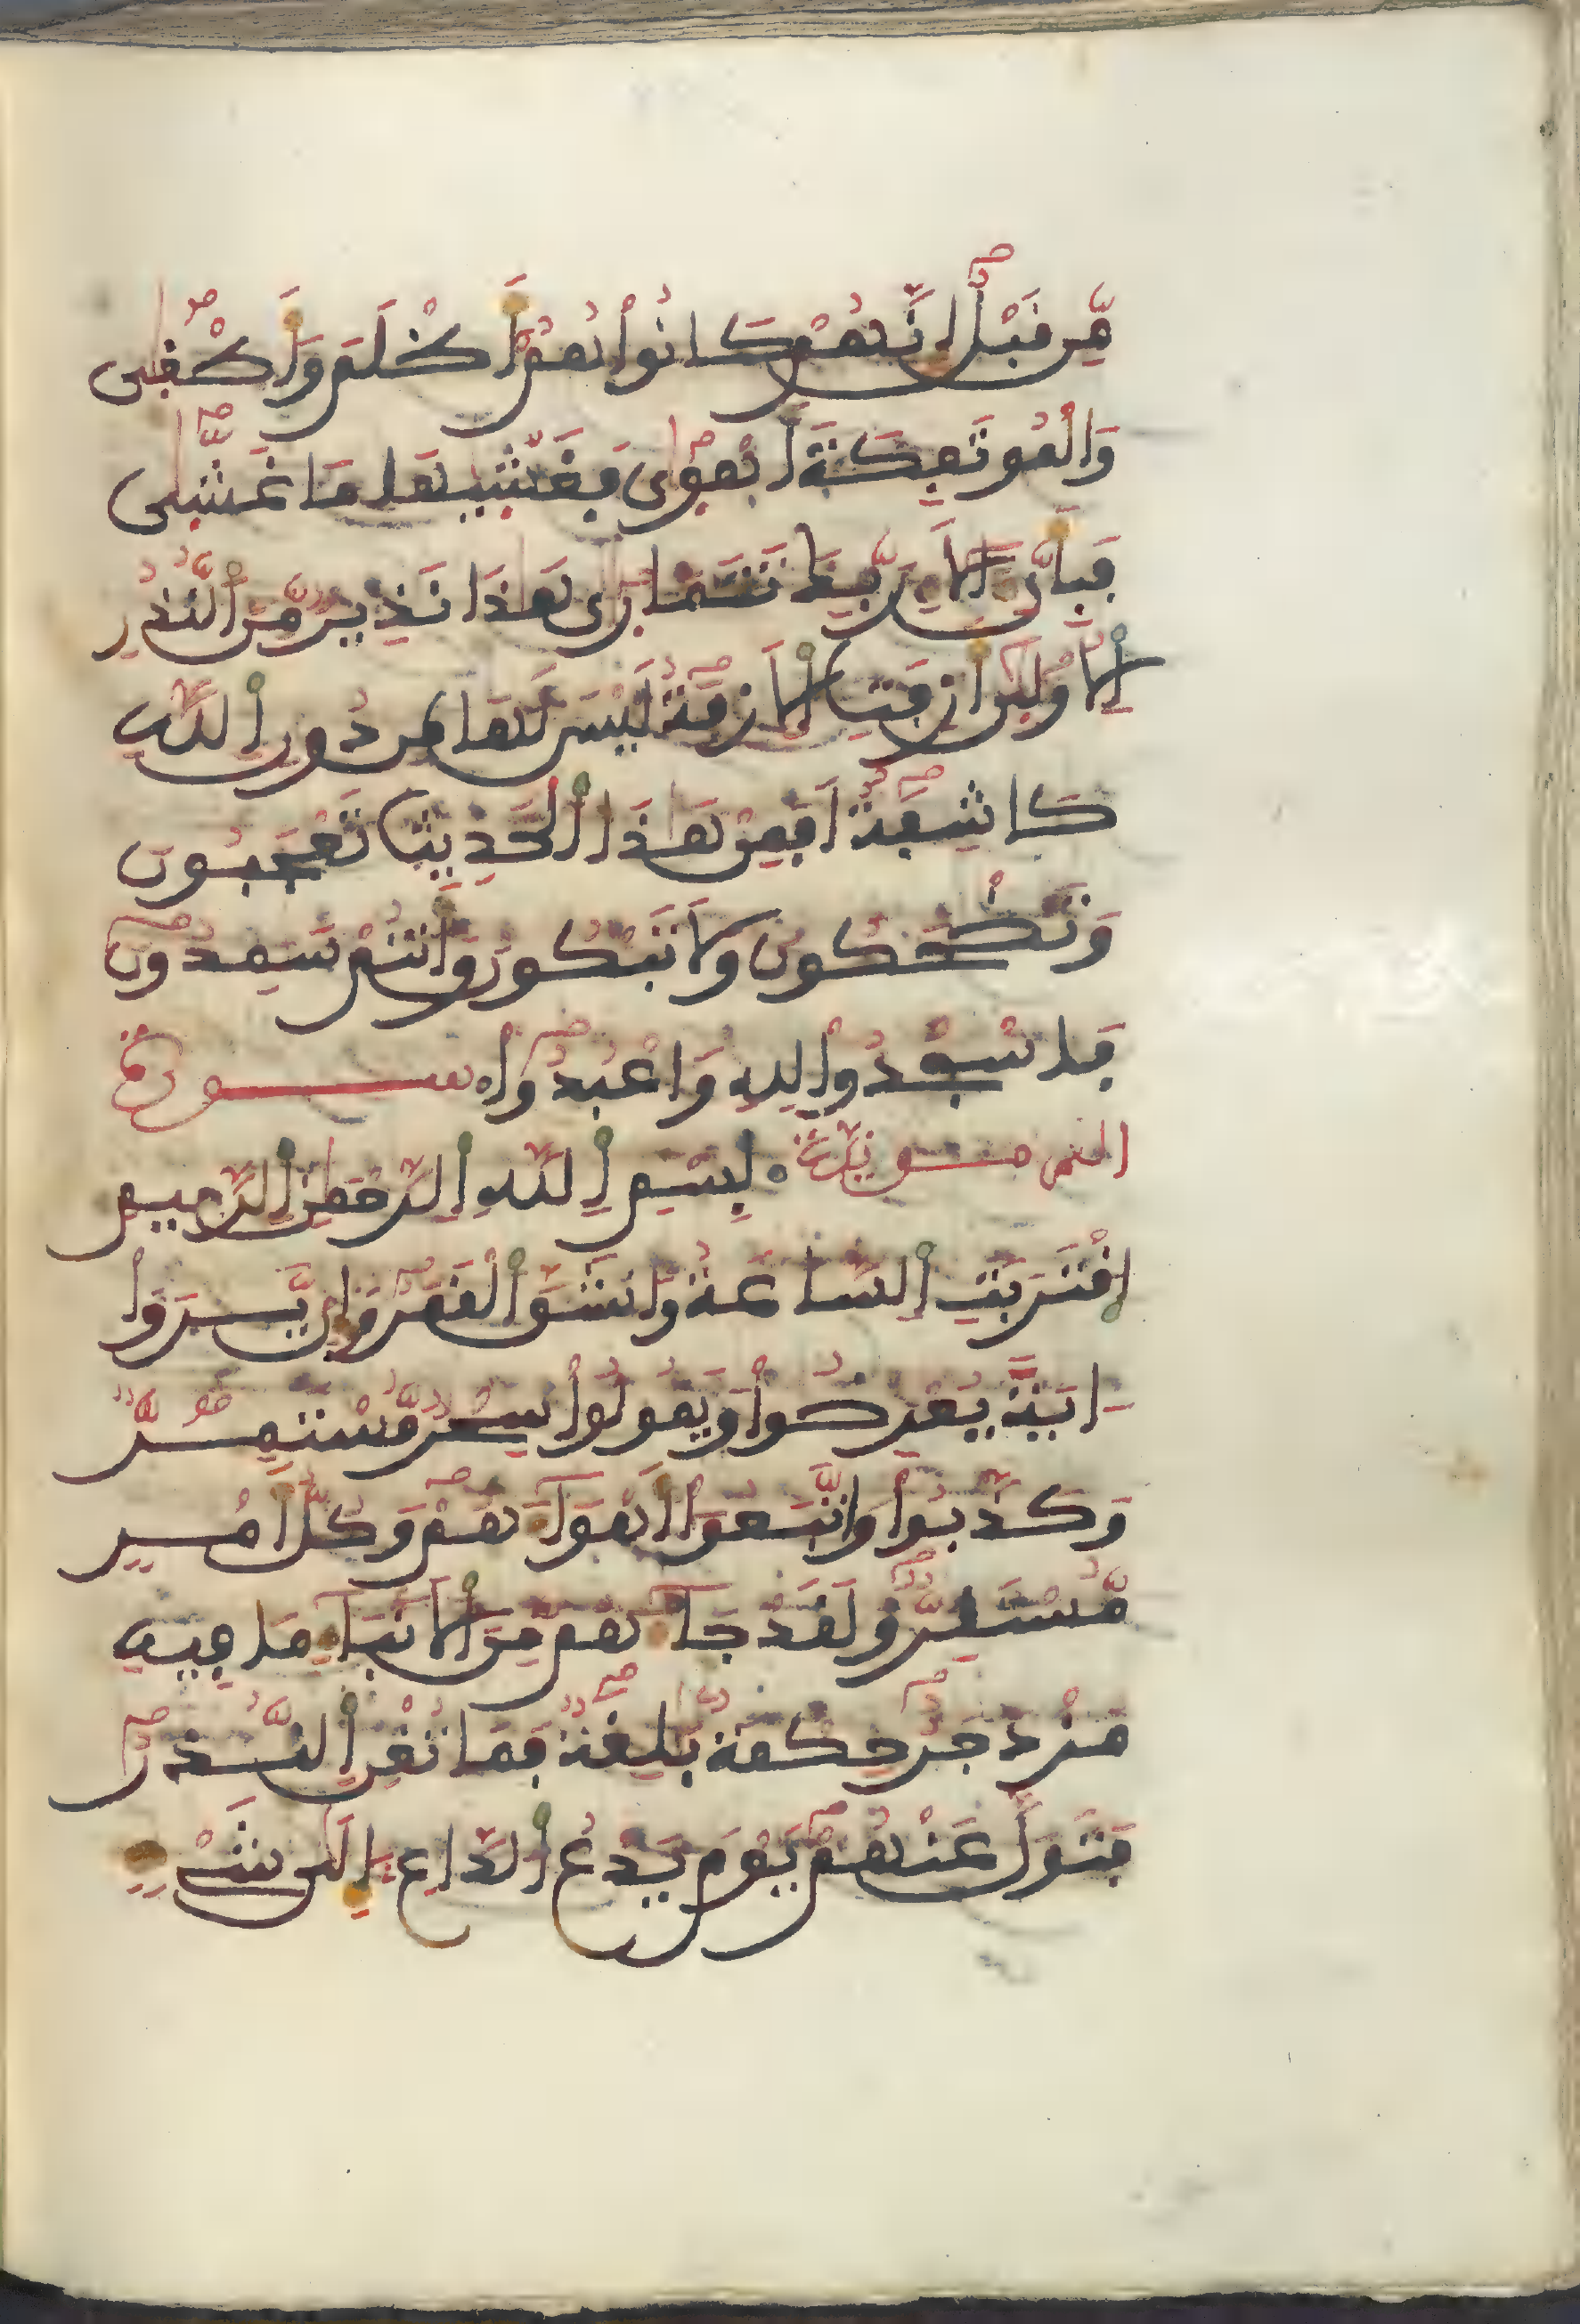 مِّن قَبْلُ إِنَّهُمْ كَانُوا۟ هُمُۥٓ أَظْلَمَ وَأَطْغَىٰ
وَالْمُوتَفِكَةَ أَهْوَىٰ فَغَشَّىٰهَا مَا غَشَّىٰ
فَبِأَيِّ ءَالَآءِ رَبِّكَ تَتَمَارَىٰ هَٰذَا نَذِيرٌ مِّنَ ٱلنُّذُرِ
ٱلُاولَىٰ أَزِفَتِ ٱلَازِفَةُ لَيْسَ لَهَا مِن دُونِ ٱللَّهِ
كَاشِفَةٌ أَفَمِنْ هَٰذَا ٱلْحَدِيثِ تَعْجَبُونَ
وَتَضْحَكُونَ وَلَا تَبْكُونَ وَأَنتُمْ سَٰمِدُونَ
فَاسْجُدُوا۟ لِلهِ وَاعْبُدُوا۟ سورة
القمر مكية بِسْمِ ٱللَّهِ ٱلرَّحْمَٰنِ ٱلرَّحِيمِ
اقْتَرَبَتِ ٱلسَّاعَةُ وَانشَقَّ ٱلْقَمَرُ وَإِنْ يَّرَوْا۟
ءَايَةً يُعْرِضُوا۟ وَيَقُولُوا۟ سِحْرٌ مُّسْتَمِرٌّ
وَكَذَّبُوا۟ وَاتَّبَعُوٓا۟ أَهْوَآءَهُمْ وَكُلُّ أَمْرٍ
مُّسْتَقِرٌّ وَلَقَدْ جَآءَهُم مِّنَ ٱلَانۢبَآءِ مَا فِيهِ
مُزْدَجَرٌ حِكْمَةٌ بَٰلِغَةٌ فَمَا تُغْنِ ٱلنُّذُرُ
فَتَوَلَّ عَنْهُمْ يَوْمَ يَدْعُ ٱلدَّاعِ إِلَىٰ شَيْءٍ